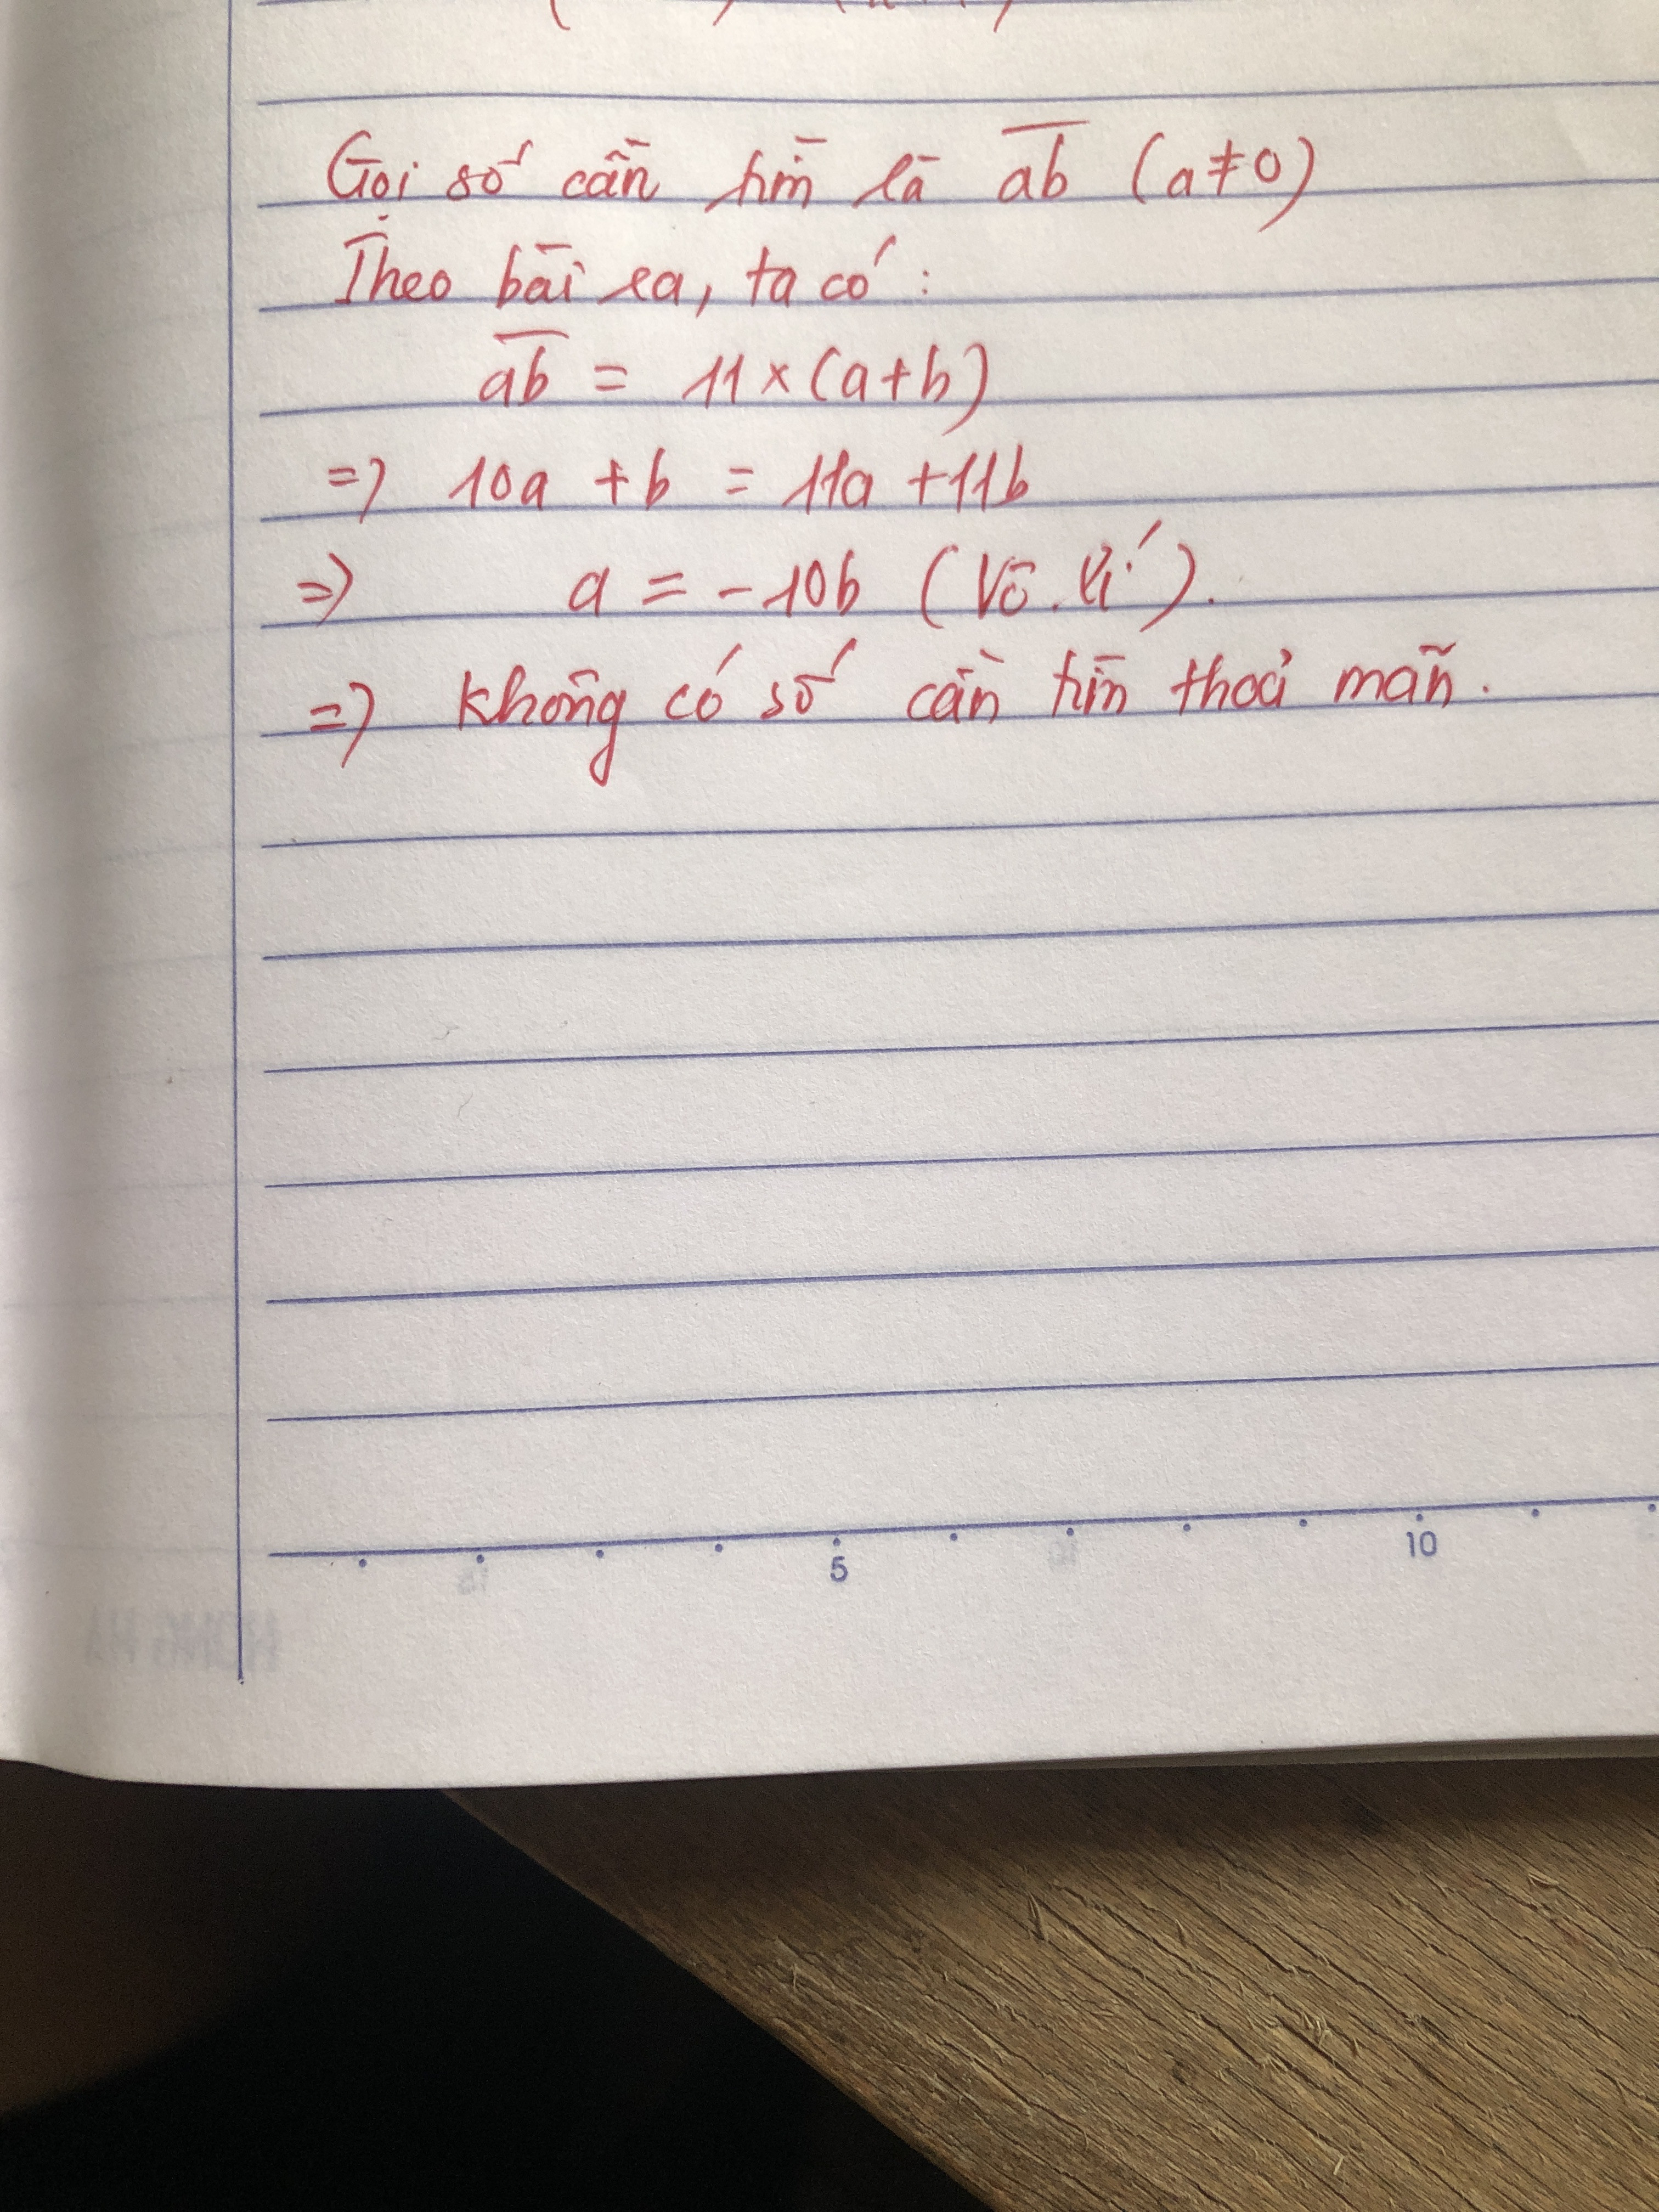 Gọi số cần tìm là ab (a≠0)
Theo bài ra, ta có:
ab = 11 × (a+b)
=> 10a + b = 11a + 11b
=> a = -10b (Vô lí).
=> Không có số cần tìm thoả mãn.
5 10